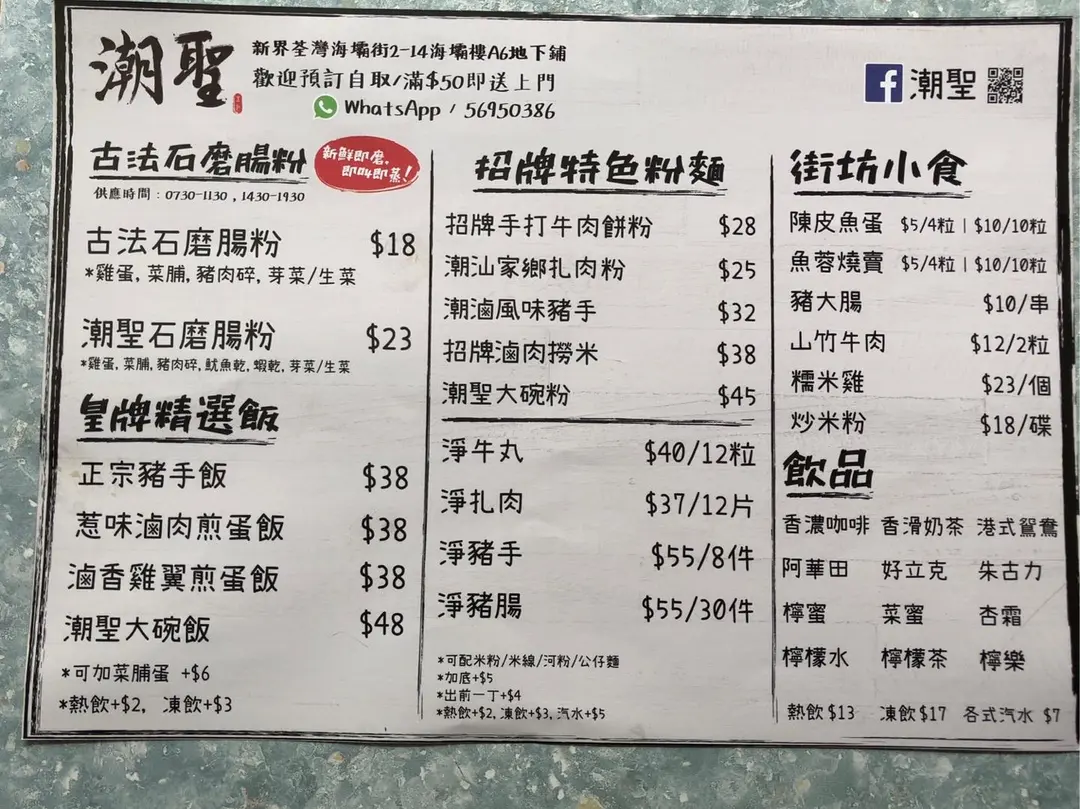 潮聖
新界荃灣海壩街2-14海壩樓A6地下鋪
歡迎預訂自取/滿$50即送上門
WhatsApp / 56950386
潮聖
古法石磨腸粉
新鮮即磨,
即加即蒸!
供應時間：0730-1130 , 1430-1930
古法石磨腸粉 $18
*雞蛋, 菜脯, 豬肉碎, 芽菜/生菜
潮聖石磨腸粉 $23
*雞蛋, 菜脯, 豬肉碎, 魷魚乾, 蝦乾, 芽菜/生菜
皇牌精選飯
正宗豬手飯 $38
惹味滷肉煎蛋飯 $38
滷香雞翼煎蛋飯 $38
潮聖大碗飯 $48
*可加菜脯蛋 +$6
*熱飲+$2, 凍飲+$3
招牌特色粉麵
招牌手打牛肉餅粉 $28
潮汕家鄉扎肉粉 $25
潮滷風味豬手 $32
招牌滷肉撈米 $38
潮聖大碗粉 $45
淨牛丸 $40/12粒
淨扎肉 $37/12片
淨豬手 $55/8件
淨豬腸 $55/30件
*可配米粉/米線/河粉/公仔麵
*加底+$5
*出前一丁+$4
*熱飲+$2, 凍飲+$3, 汽水+$5
街坊小食
陳皮魚蛋 $5/4粒 | $10/10粒
魚蓉燒賣 $5/4粒 | $10/10粒
豬大腸 $10/串
山竹牛肉 $12/2粒
糯米雞 $23/個
炒米粉 $18/碟
飲品
香濃咖啡 香滑奶茶 港式鴛鴦
阿華田 好立克 朱古力
檸蜜 菜蜜 杏霜
檸檬水 檸檬茶 檸樂
熱飲 $13 凍飲 $17 各式汽水 $7